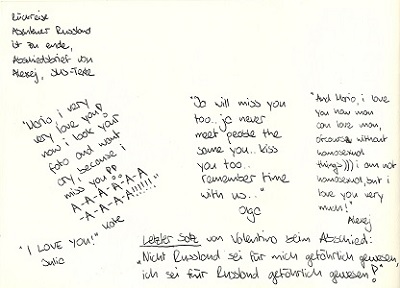 Rückreise
Abenteuer Russland
ist zu ende,
Abschiedsbrief von
Alexej, SMS-Texte
"Mario i very
very love you!
now i look your
foto and want
cry, because i
miss you!!
A-A-A-A-A-A
-A-A-A!!!!!!"
Kate
"I LOVE YOU!"
Julic
"Jo will miss you
too.. jo never
meet people the
same you.. kiss
you too..
remember time
with us.."
Olga
"And Mario, i love
you how man
can love man,
ofcourse without
homosexual
things))) i am not
homosexual, but i
love you very
much!"
Alexej
Letzter Satz von Valentino beim Abschied:
"Nicht Russland sei für mich gefährlich gewesen,
ich sei für Russland gefährlich gewesen!"